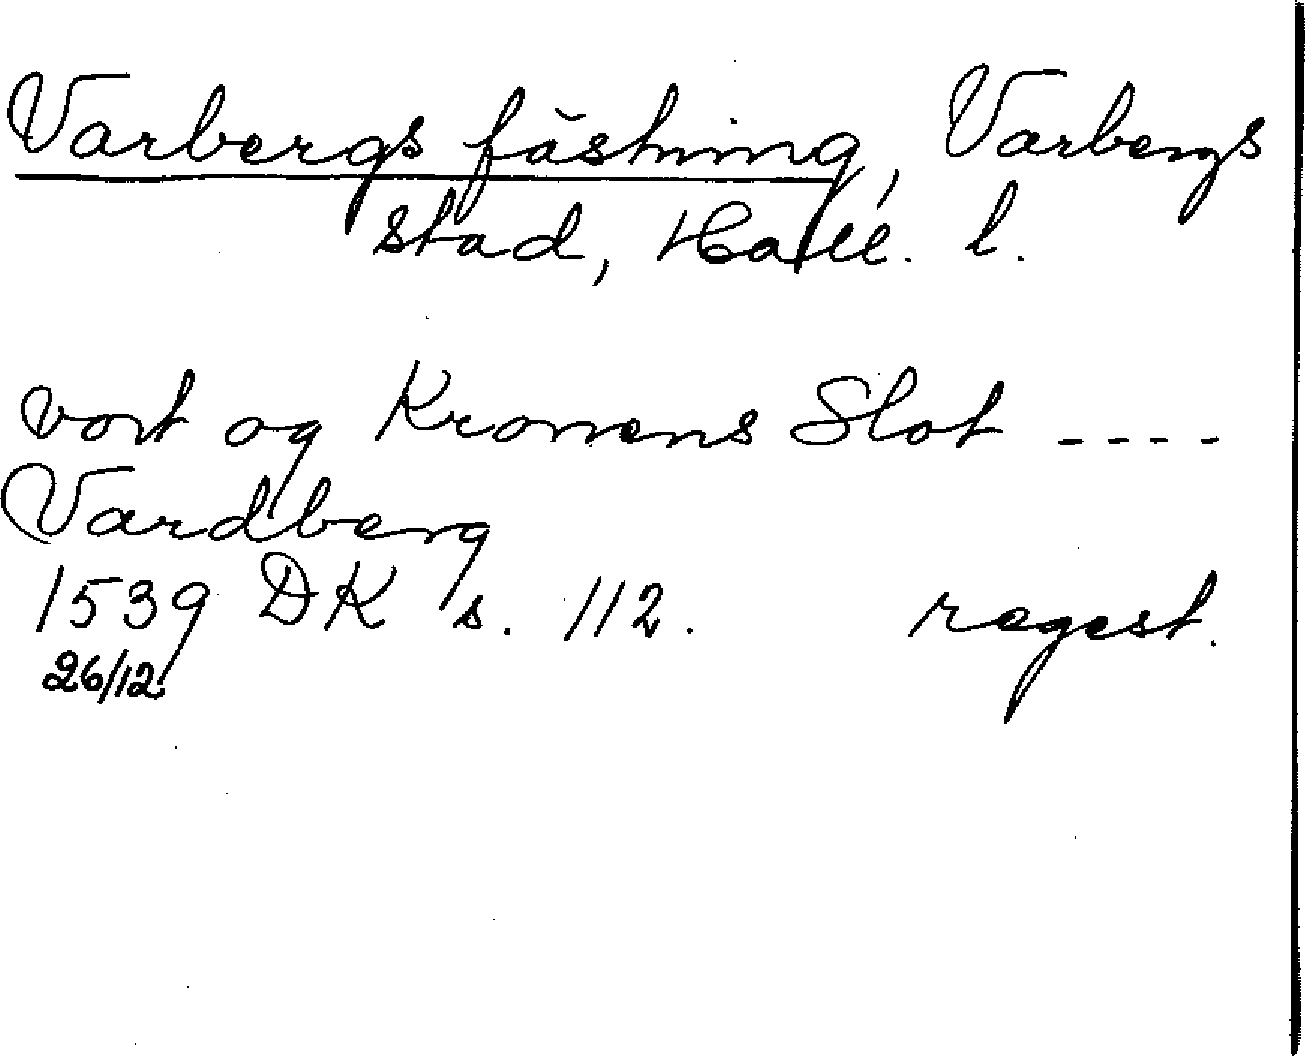 Varbergs fästning, Varbergs
stad, Hall. l.
vort og Kronens Slot ----
Vardberg
1539 DK s. 112. regest.
26/12